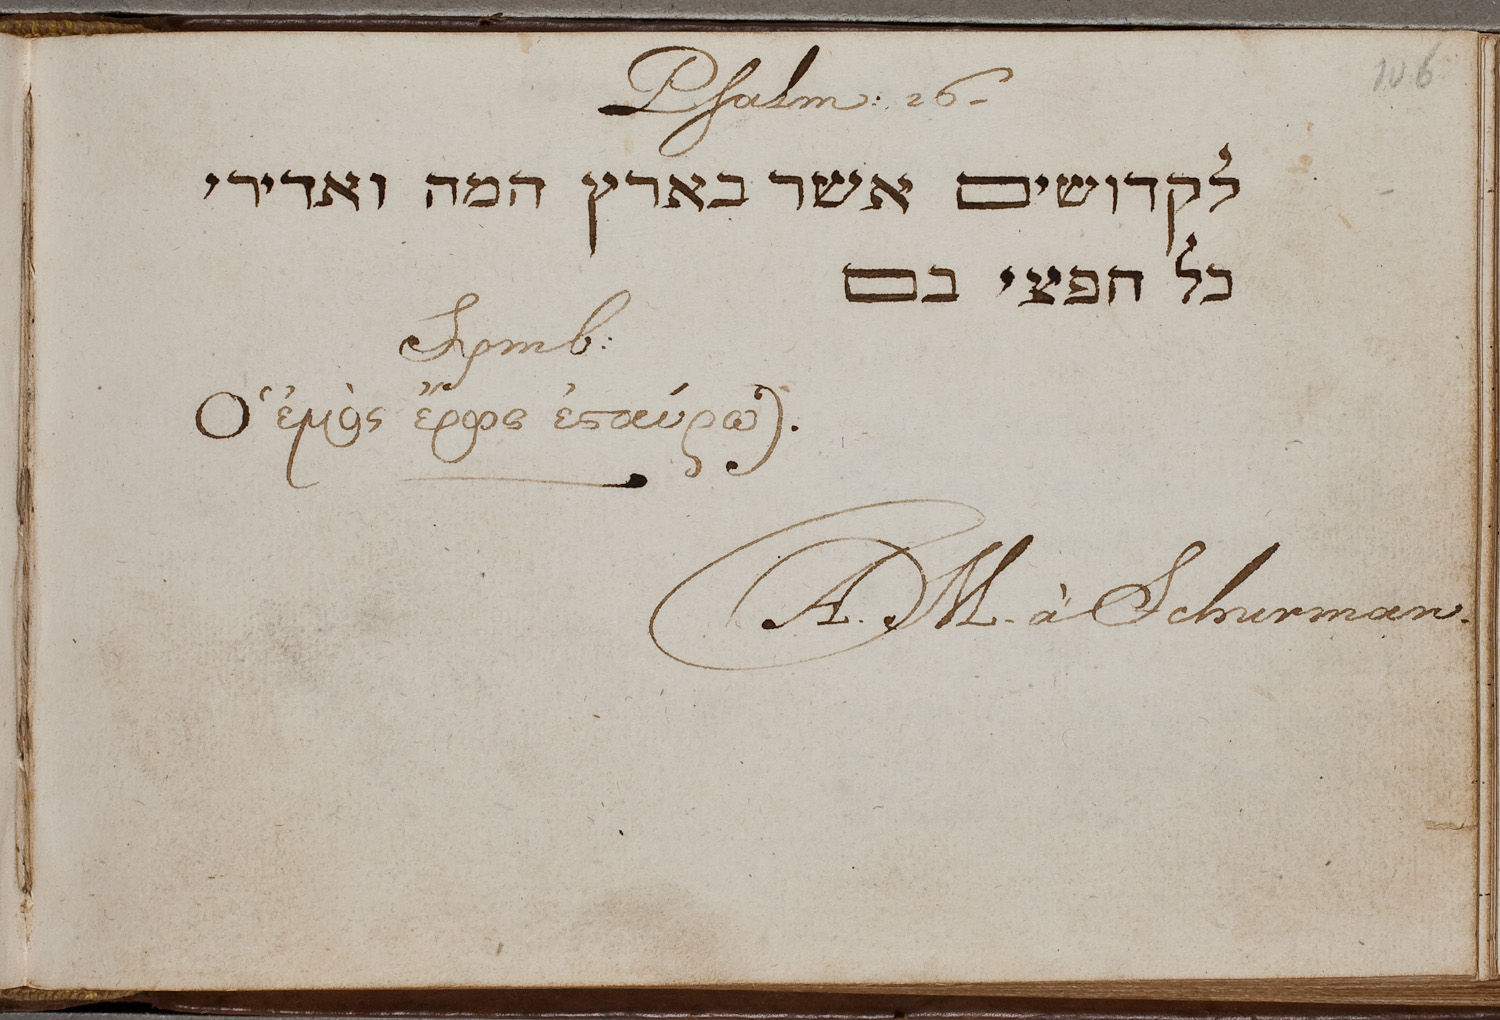 106
Psalm: 26-
לקדושים אשר בארץ המה ואדירי
כל חפצי בם
Symb:
Ὁ ἐμὸς ἔρως ἐσταύρωται.
A. M. à Schurman.